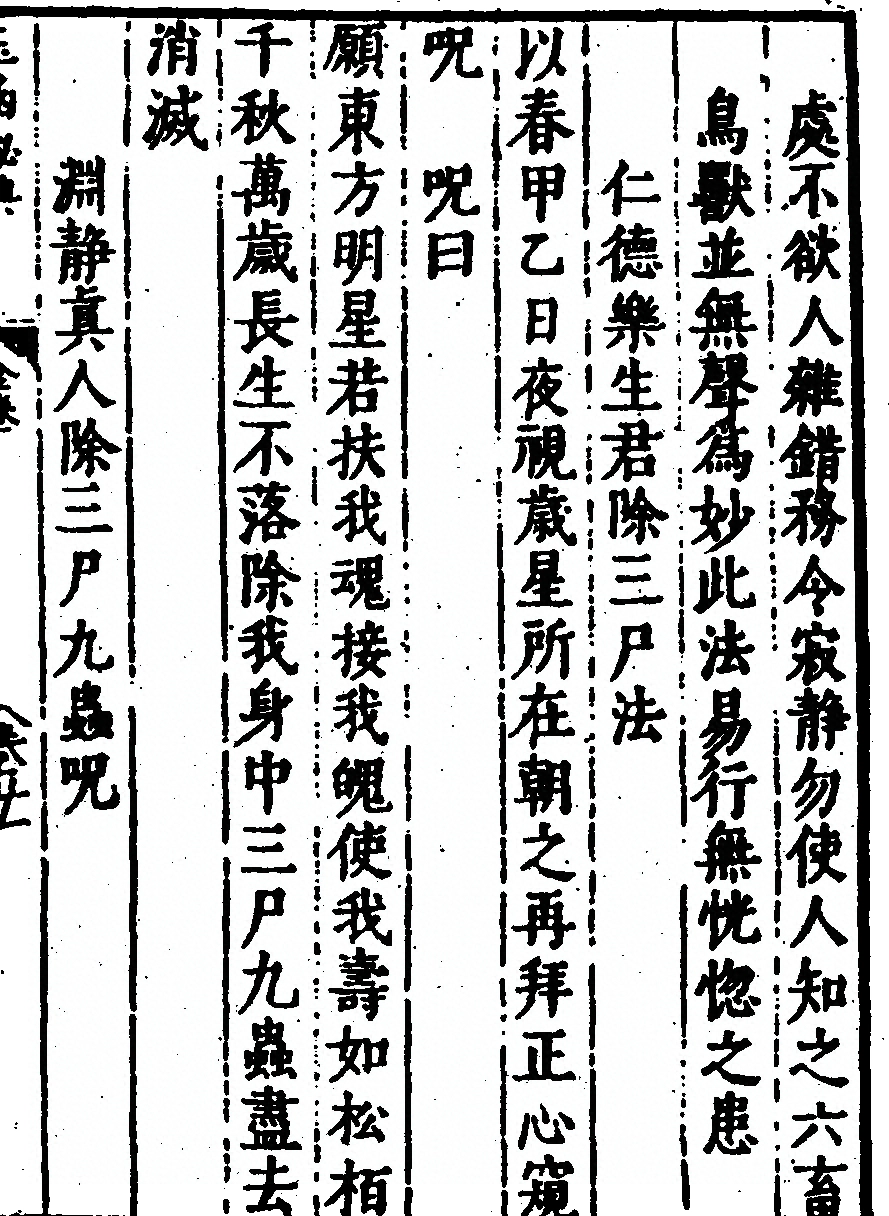 處不欲人雜錯務令寂静勿使人知之六畜
鳥獸並無聲爲妙此法易行無恍惚之患
仁德樂生君除三尸法
以春甲乙日夜視歲星所在朝之再拜正心窺
呪 呪曰
願東方明星若扶我魂接我魄使我壽如松栢
千秋萬歲長生不落除我身中三尸九蟲盡去
消滅
淵静眞人除三尸九蟲呪